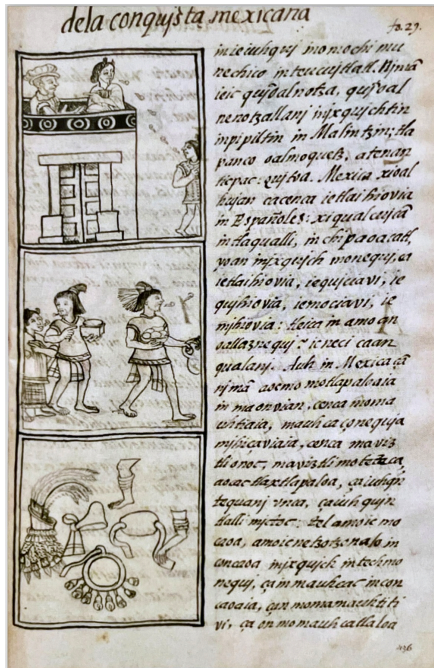 dela conquista mexicana
fo. 29.
in ie iuhquj in omochi mu
nechico in teucujtlatl. Njmã
ie ic qujoalnotza, qujoal
nenotzallanj injxqujchtin
in pipiltin in Malintzin; tla
panco oalmoquetz, atenan
ticpac: qujtoa. Mexica xioal
hujan ca cenca ie tlaihiovia
in Españoles: xiqualcujcã
in tlaqualli, in chipaoacatl,
yoan injxqujch monequj, ca
ie tlaihiovia, ie qujciavi, ie
qujhiovia, ie mociavi, ie
mjhiovia: tleica in amo an
oallaznequj? ic neci ca an
qualanj. Auh in Mexica çã
njmã aocmo motlapaloaia
in ma onvian, cenca moma
uhtiaia, mauhcaçonequja
mjhiçaviaia, cenca maviz
tli onoc, maviztli moteteca,
aocac tlaxtlapaloa, ça iuhqujn
tequanj vnca, ça iuhqujn
tlalli mjctoc: tel amo ic mo
caoa, amo ic netzotzonalo in
concaoa injxqujch intechmo
nequj, ça in mauhcac in con
caoaia,
vi, ça onmomauhcatlaloa